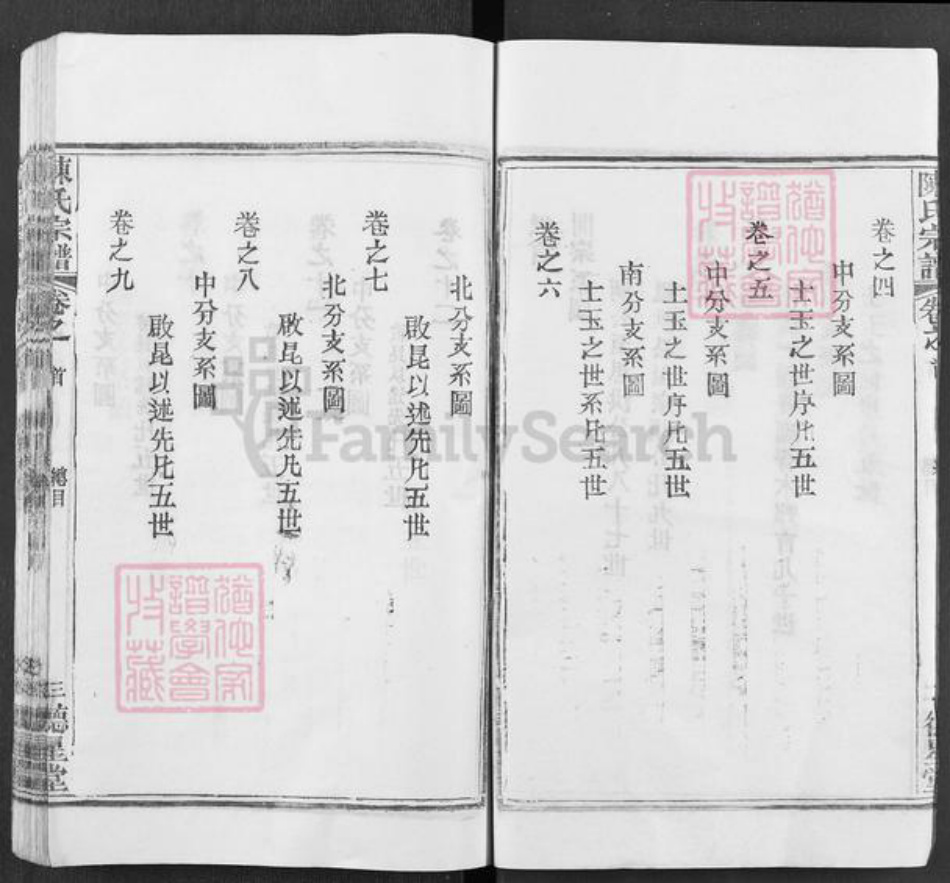 卷之四
中分支系圖
士玉之世序凡五世
卷之五
中分支系圖
士玉之世序凡五世
南分支系圖
士玉之世系凡五世
卷之六
北分支系圖
啟昆以述先凡五世
卷之七
北分支系圖
啟昆以述先凡五世
卷之八
中分支系圖
啟昆以述先凡五世
卷之九
陳氏宗譜
卷之首
總目
三
德星堂
猶他家
譜學會
收藏
FamilySearch